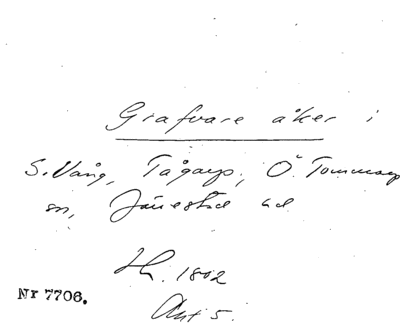 Grafvare åker i
S. Vång, Tågarp, Ö. Tommarp
sn, Järrestad hd
Sk. 1802
Akt 5.
Nr 7706.